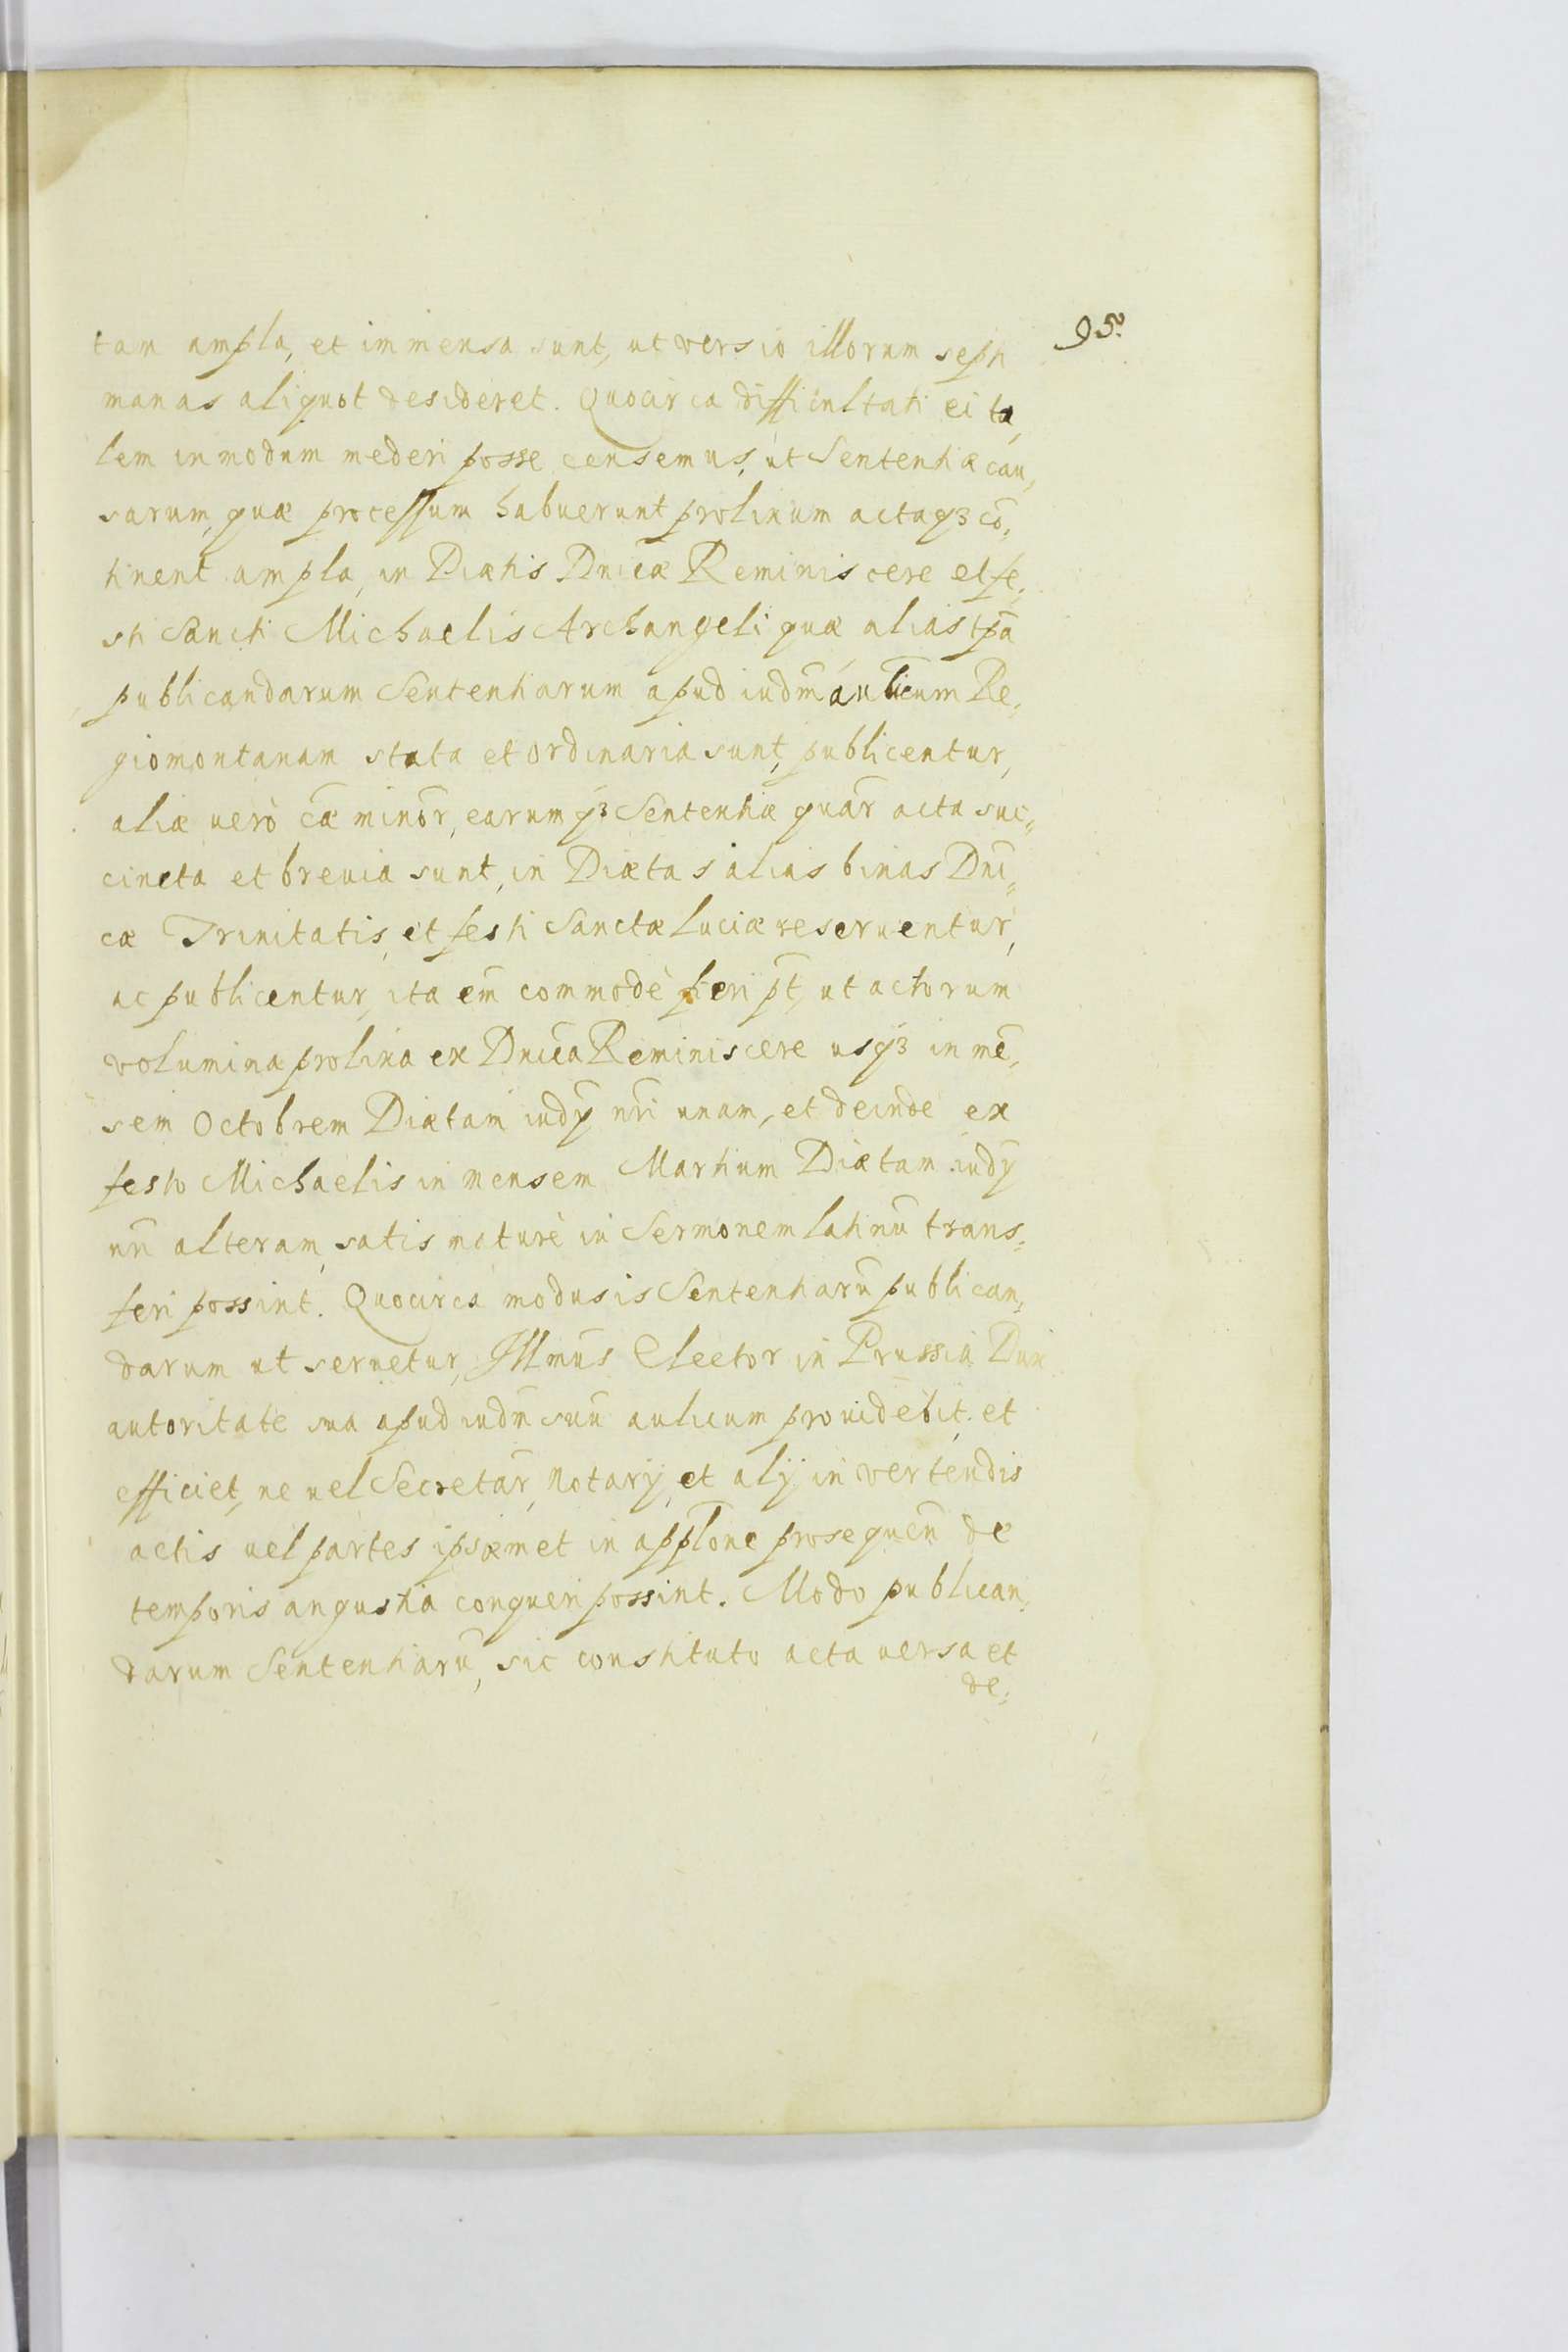 95.
tam ampla, et immensa sunt, ut versio illorum septi
manas aliquot desideret. Quocirca difficultati ei ta,
lem in modum mederi posse censemus, ut Sententiæ cau,
sarum, quæ processum habuerunt prolixum actaqȝ cō,
tinent ampla, in Diætis Dnicæ Reminiscere et fe,
sti Sancti Michaelis Archangeli quæ alias tp̄a
publicandarum Sententiarum apud iudm̄ aulicum Re,
giomontanam stata et ordinaria sunt, publicentur,
aliæ uerò cǣ minor̄, earumqȝ Sententiæ quar̄ acta suc,,
cincta et breuia sunt, in Diætas alias binas Dni,,
cæ Trinitatis, et festi Sanctæ Luciæ reseruentur,
ac publicentur, ita em̄ commodè fieri pt̄, ut actorum
volumina prolixa ex Dnica Reminiscere usqȝ in mē,
sem Octobrem Diætam iudÿ nri unam, et deinde ex
festo Michaelis in mensem Martium Diætam iudÿ
nri alteram, satis maturè in Sermonem latinū trans,
ferri possint. Quocirca modus is Sententiarū publican,
darum ut seruetur, Illmūs Elector in Prussia Dux
autoritate sua apud iudm̄ suū aulicum prouidebit, et
efficiet, ne uel Secretar̄, Notarÿ, et alÿ in vertendis
actis uel partes ipsæmet in appl̄one prosequen̄ de
temporis angustia conqueri possint. Modo publican,
darum Sententiarū, sic constituto acta uersa et
de,